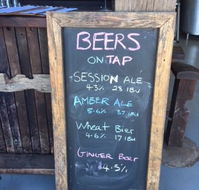 BEERS
ON TAP
SESSION ALE
4.3% 28 IBU
AMBER ALE
5.6% 37 IBU
Wheat Bier
4.6% 17 IBU
GINGER Beer
4.5%